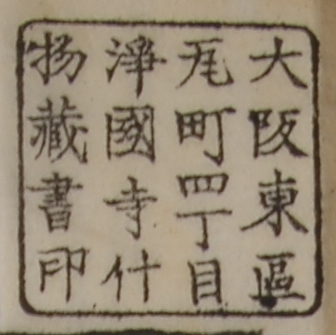 大阪東區
瓦町四丁目
淨國寺什
物藏書印